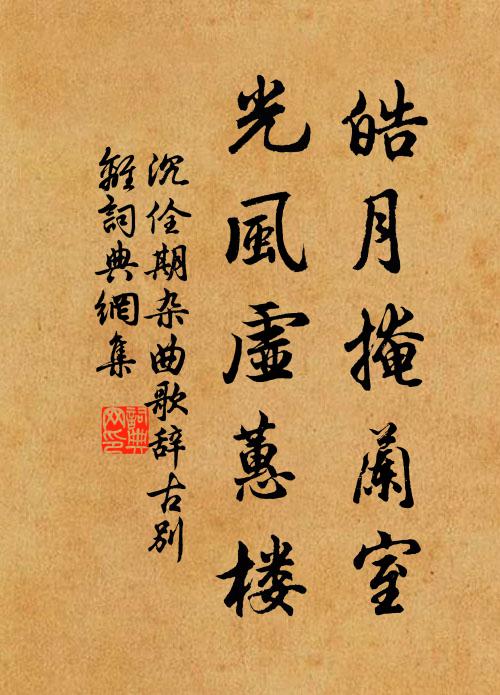 皓月掩蘭室
光風虛蕙楼
沉佺期杂曲歌辞古别
離詞典網集
詞典